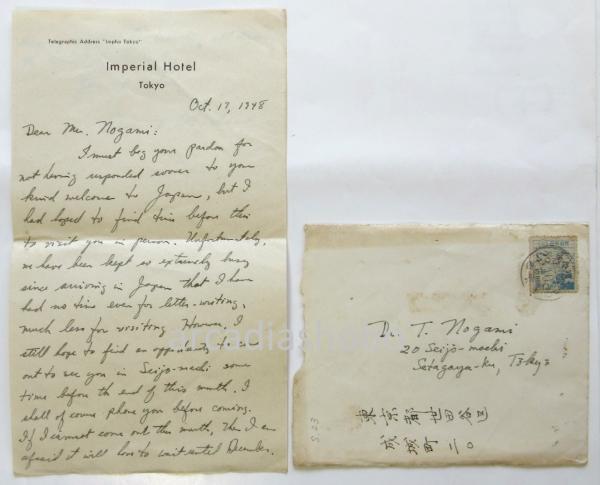 Telegraphic Address "Impho Tokyo"
Imperial Hotel
Tokyo
Oct. 17, 1948
Dear Mr. Nogami:
I must beg your pardon for
not having responded sooner to your
kind welcome to Japan, but I
had hoped to find time before this
to visit you in person. Unfortunately,
we have been kept so extremely busy
since arriving in Japan that I have
had no time even for letter-writing,
much less for visiting. However, I
still hope to find an opportunity to come
out to see you in Seijo-machi some
time before the end of this month. I
shall of course phone you before coming.
If I cannot come out this month, then I am
afraid it will have to wait until December.
arcadiashobo
Dr. T. Nogami
20 Seijo-machi
Setagaya-ku, Tokyo
東京都世田谷区
成城町二〇
S.23